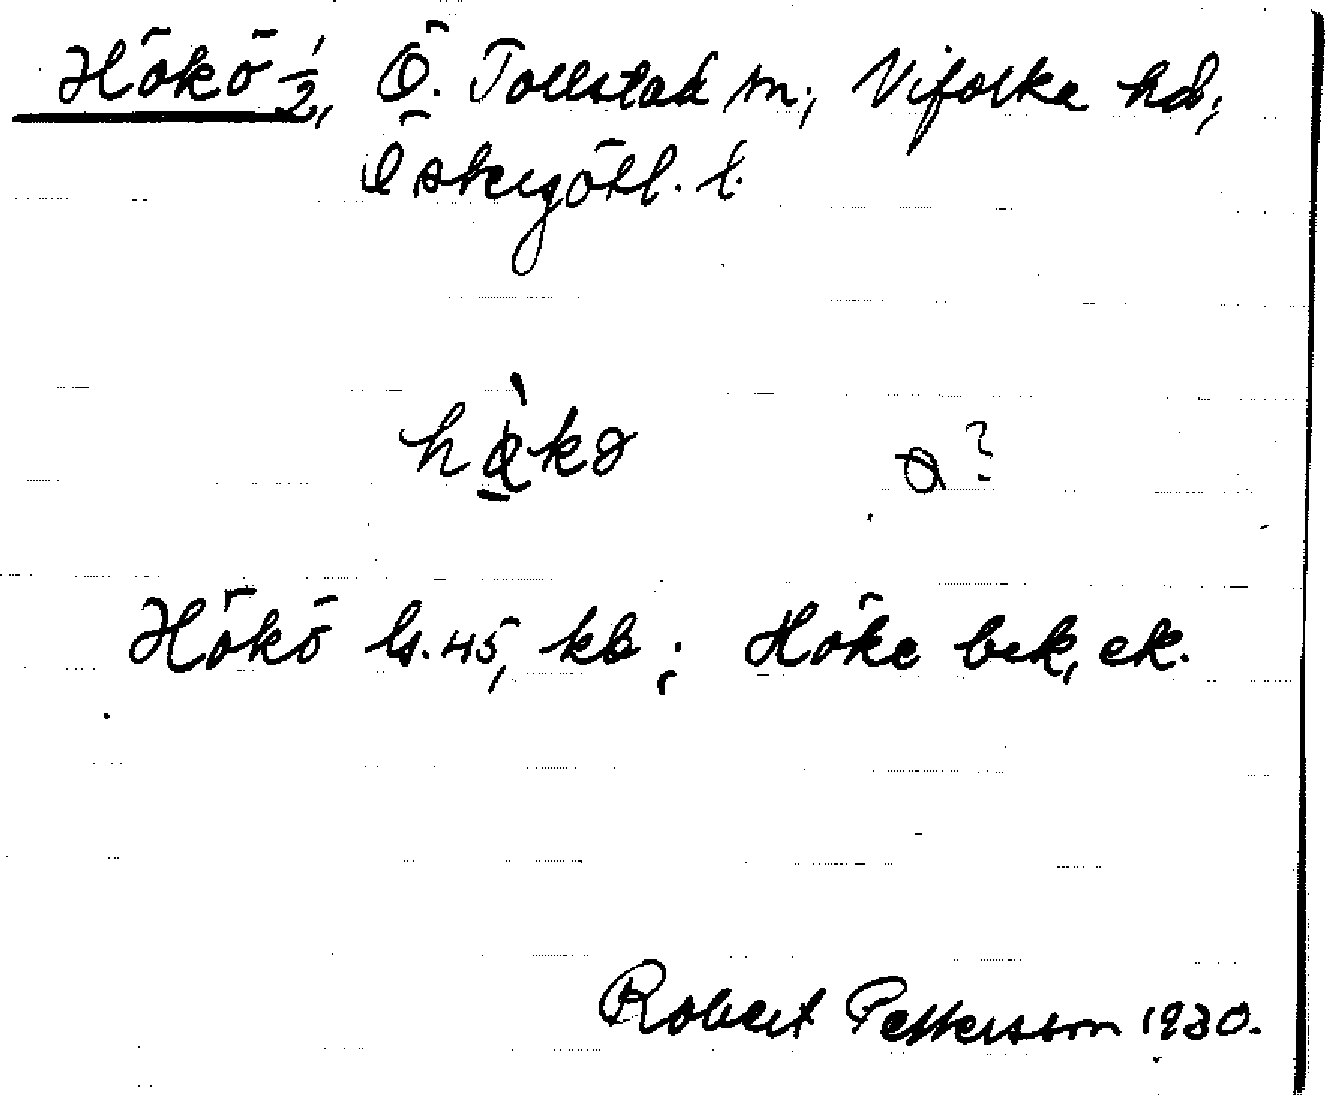 Hökö ½, Ö. Tollstad sn; Vifolka hd,
Östergötl. l.
?
Hökö ls. 45, kb; Höke bek, ek.
Robert Pettersson 1930.